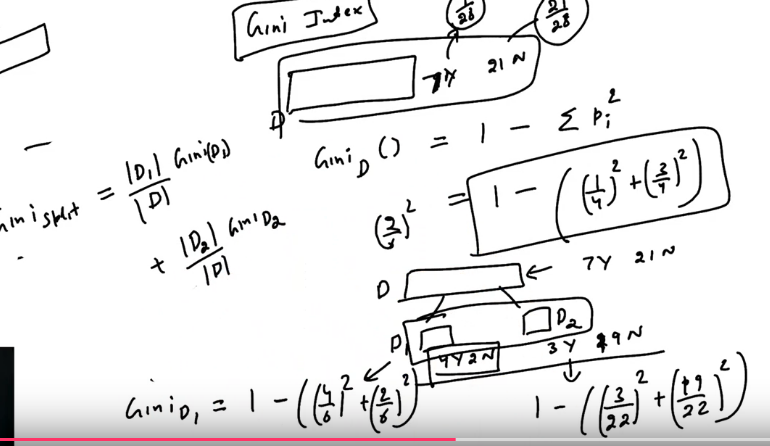 Gini Index
7/28
21/28
7Y 21N
D
Gini_D () = 1 - Σ Pi^2
= 1 - ((1/4)^2 + (3/4)^2)
Gini split = |D1|/|D| Gini(D1)
+ |D2|/|D| Gini D2
D
7Y 21N
D1
D2
4Y2N
3Y 19N
Gini D1 = 1 - ((4/6)^2 + (2/6)^2)
1 - ((3/22)^2 + (19/22)^2)